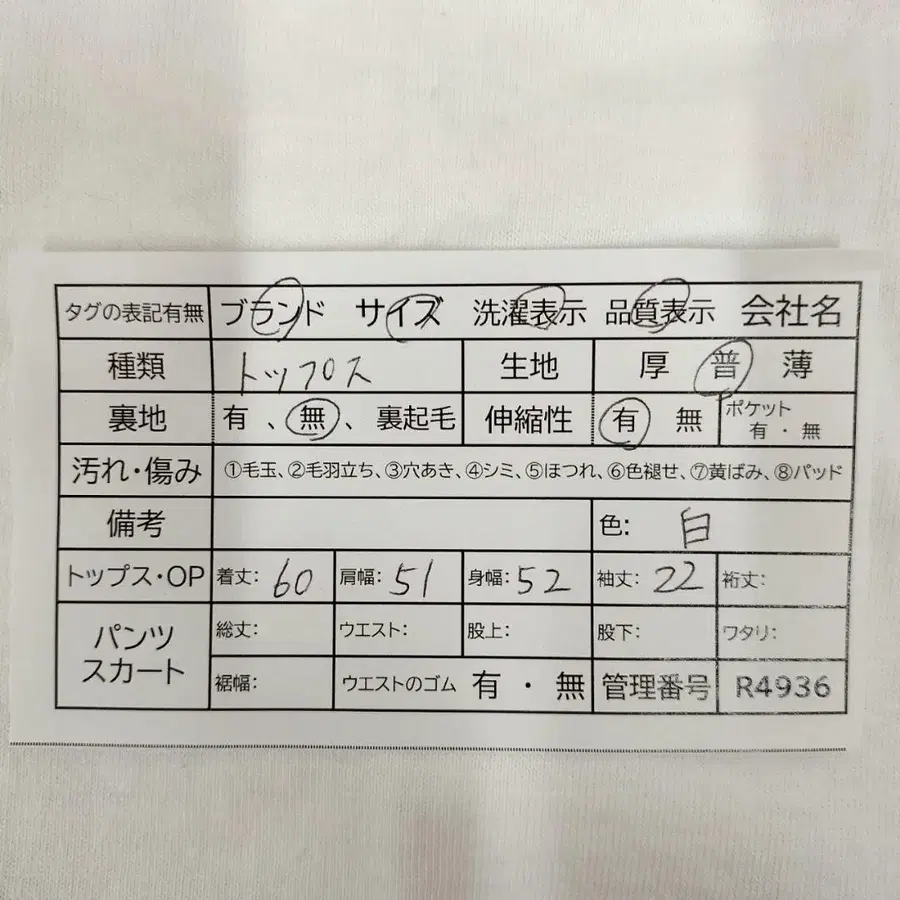 タグの表記有無 ブランド サイズ 洗濯表示 品質表示 会社名
種類 トップス 生地 厚 普 薄
裏地 有、無、裏起毛 伸縮性 有 無 ポケット 有・無
汚れ・傷み ①毛玉、②毛羽立ち、③穴あき、④シミ、⑤ほつれ、⑥色褪せ、⑦黄ばみ、⑧パッド
備考 色: 白
トップス・OP 着丈: 60 肩幅: 51 身幅: 52 袖丈: 22 裄丈:
パンツ スカート 総丈: ウエスト: 股上: 股下: ワタリ:
裾幅: ウエストのゴム 有・無 管理番号 R4936